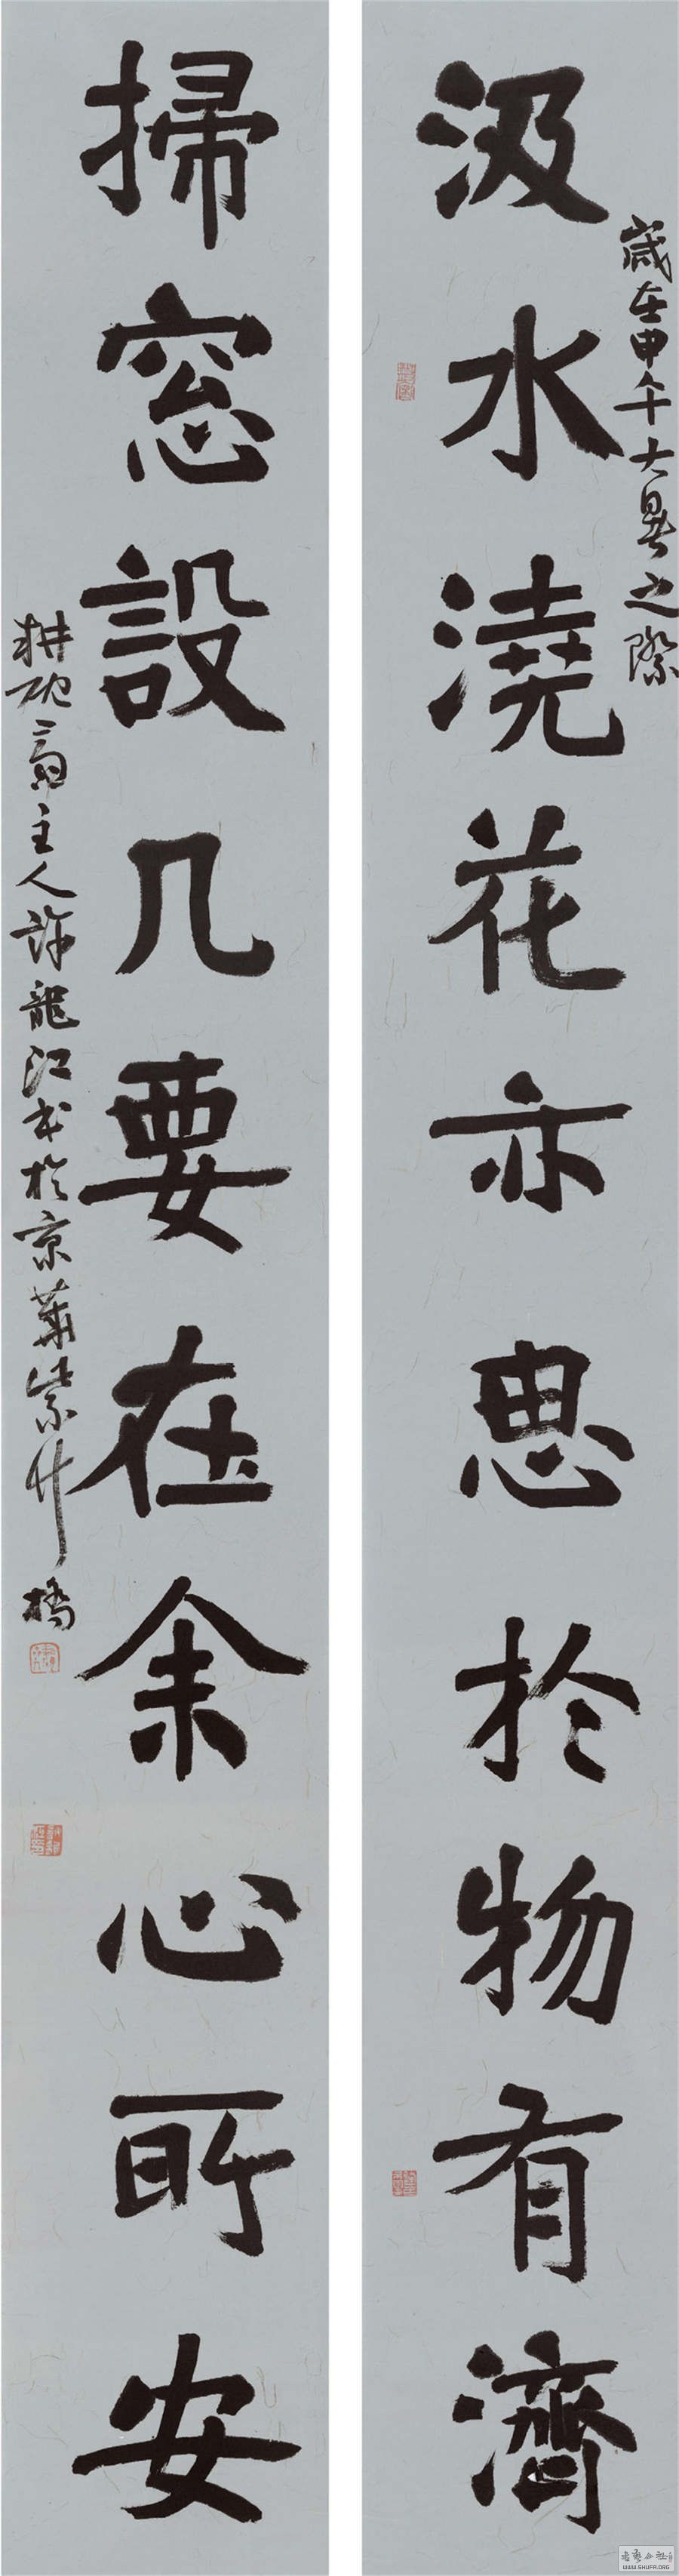 歲在甲午大暑之際
汲水澆花亦思於物有濟
掃窓設几要在余心所安
耕砚斋主人許龍江书於京華紫竹橋
WWW.SHUFA.ORG